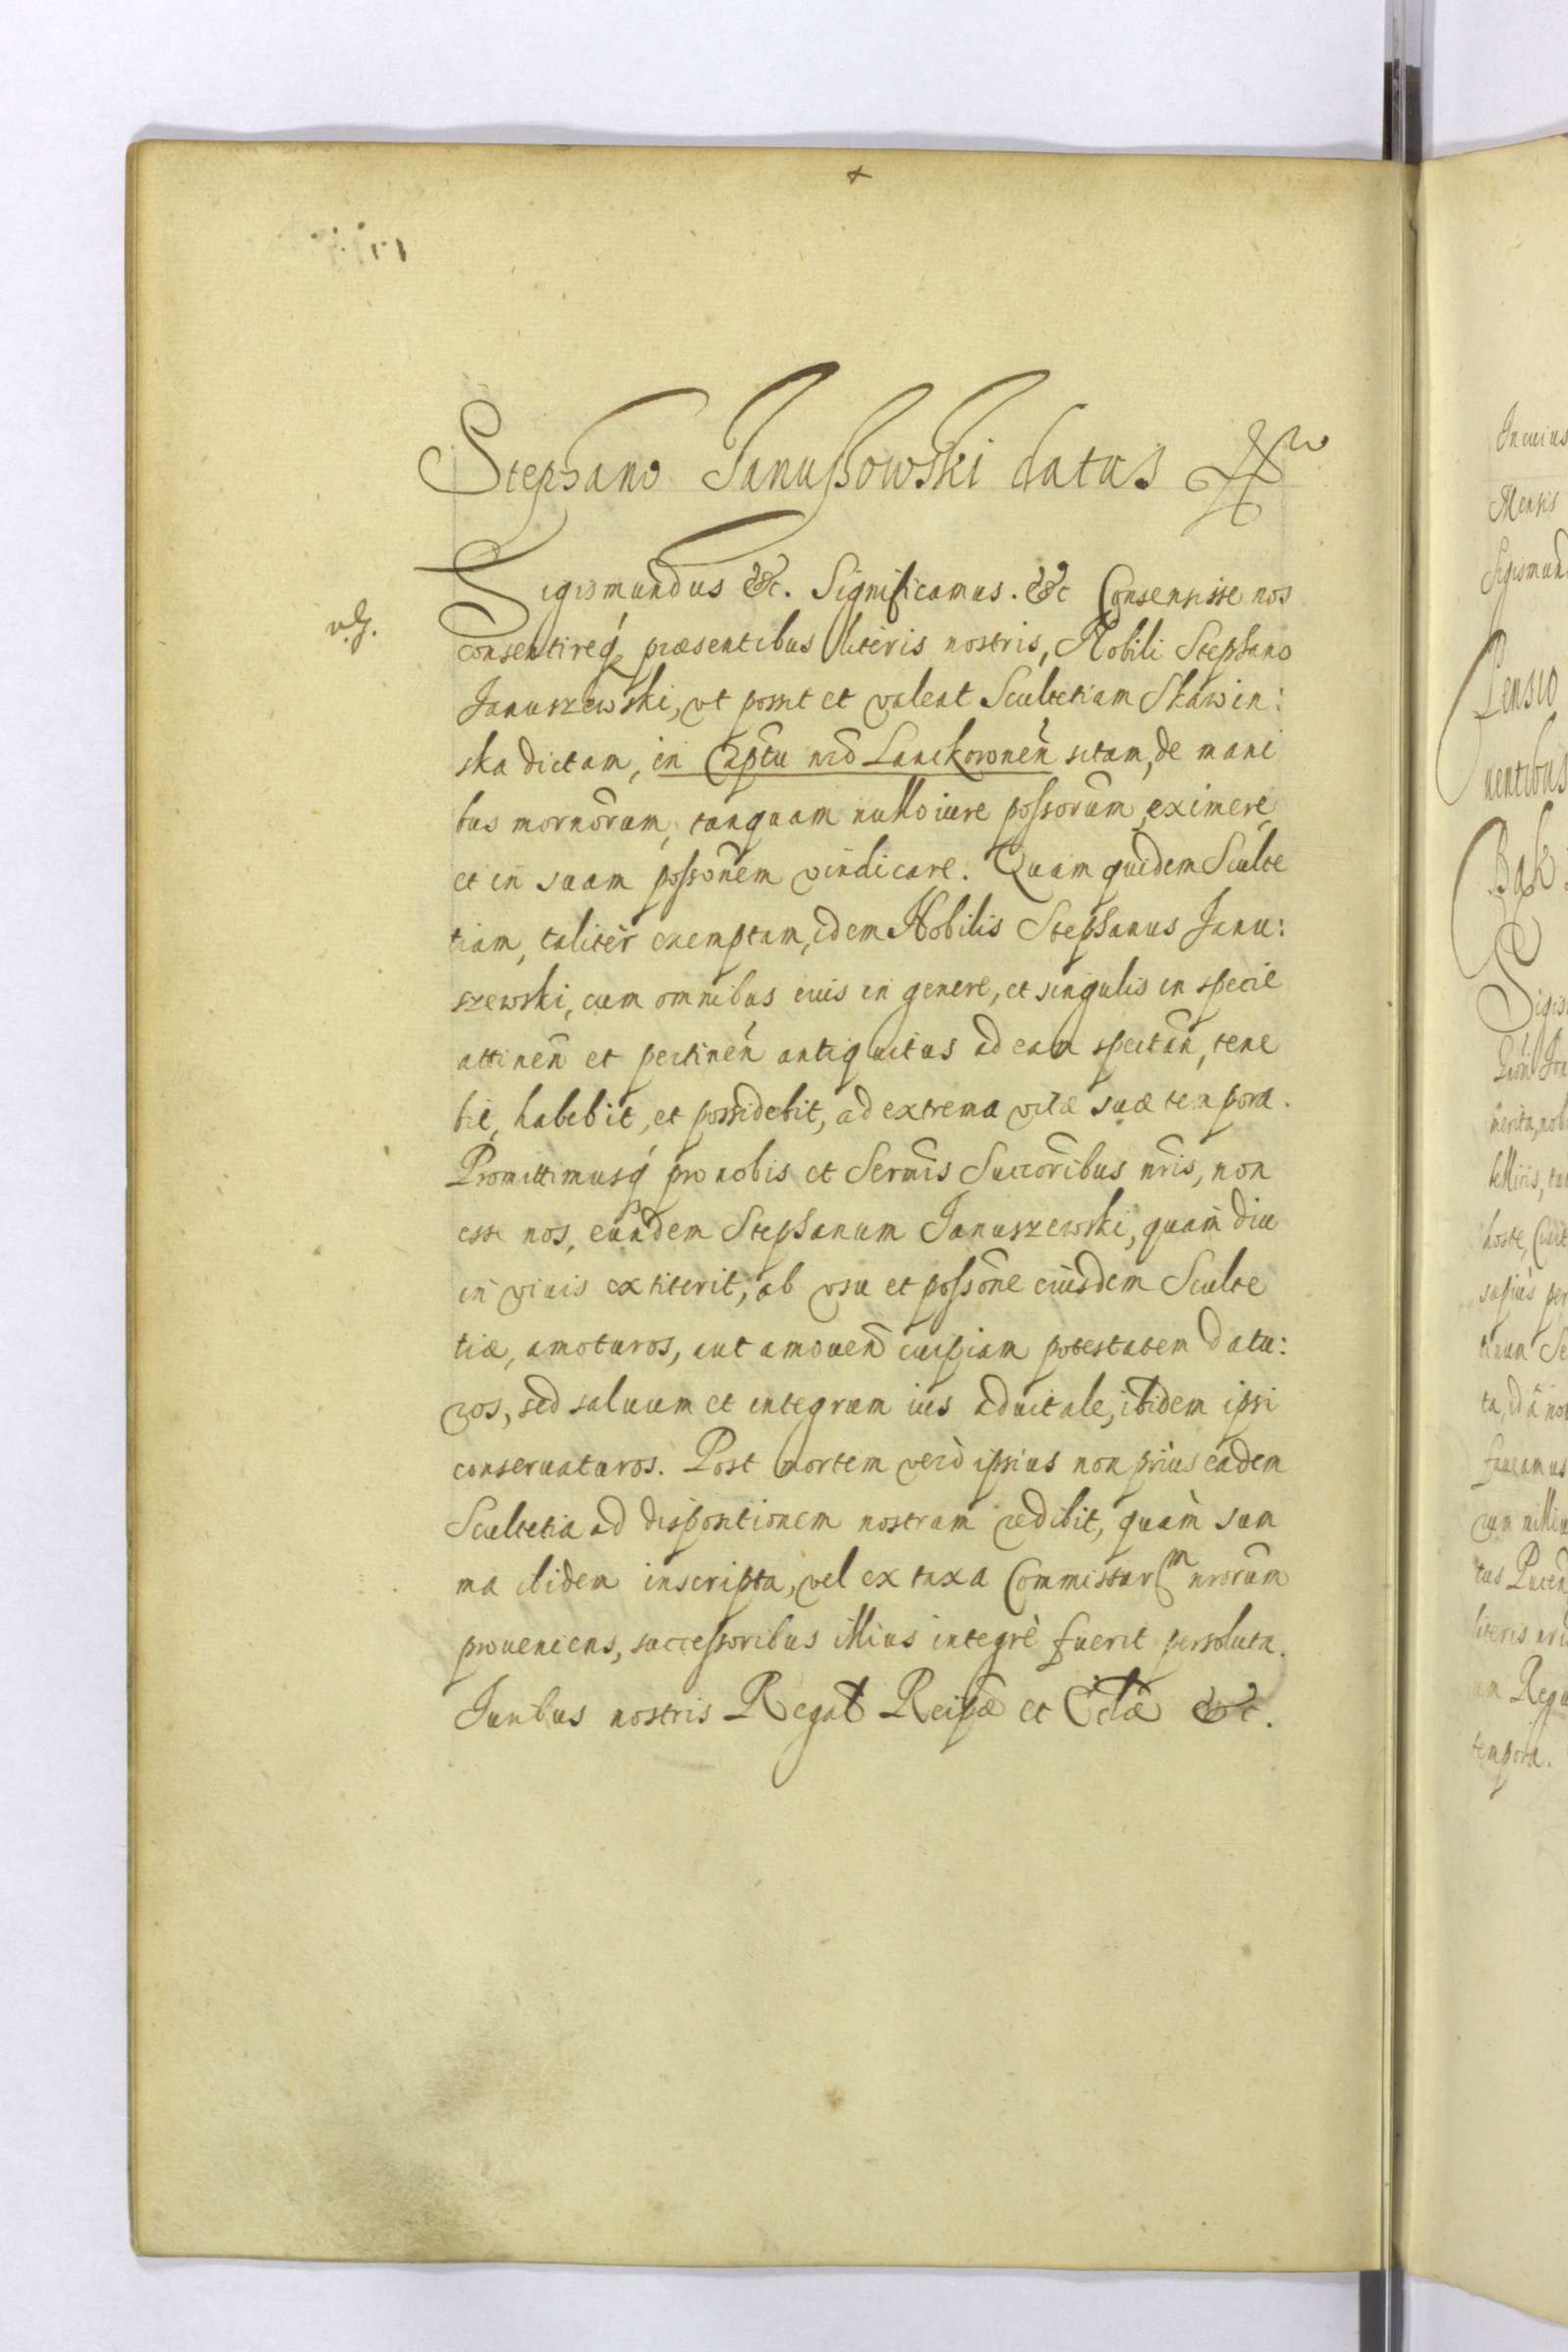 Stephano Janußowski datas
Sigismundus &c. Significamus. &c Consensisse nos
v.g.
consentireq́ præsentibus literis nostris, Nobili Stephano
Januszewski, vt possit et valeat Scultetiam Skawin:
ska dictam, in Cap̃tu nr̃o Lanckoronen̄ sitam, de mani
bus mornōrum, tanquam nullo iure poſsorūm, eximere,
et in suam poſsōnem vindicare. Quam quidem Sculte
tiam, talitèr exemptam, idem Nobilis Stephanus Janu:
szewski, cum omnibus eius in genere, et singulis in specie
attinen̄ et pertinen̄ antiquitus ad eam spectan̄, tene
bit, habebit, et possidebit, ad extrema vitæ suæ tempora.
Promittimusq́ pro nobis et Serm̄is Succōribus nr̄is, non
esse nos, eundem Stephanum Januszewski, quam diu
in viuis extiterit, ab vsu et poſsōne eiusdem Sculte
tiæ, amoturos, aut amouen̄ cuipiam potestatem datu:
ros, sed saluum et integrum ius aduitale, ibidem ipsi
conseruaturos. Post mortem verò ipsius non priùs eadem
Scultetia ad dispositionem nostram redibit, quàm sum
ma ibidem inscripta, vel ex taxa Commissar⁽ᵐ nrōrum
proueniens, succeſsoribus illius integrè fuerit persoluta.
Juribus nostris Regal̄ Reip̄æ et Ecl̄æ &c.